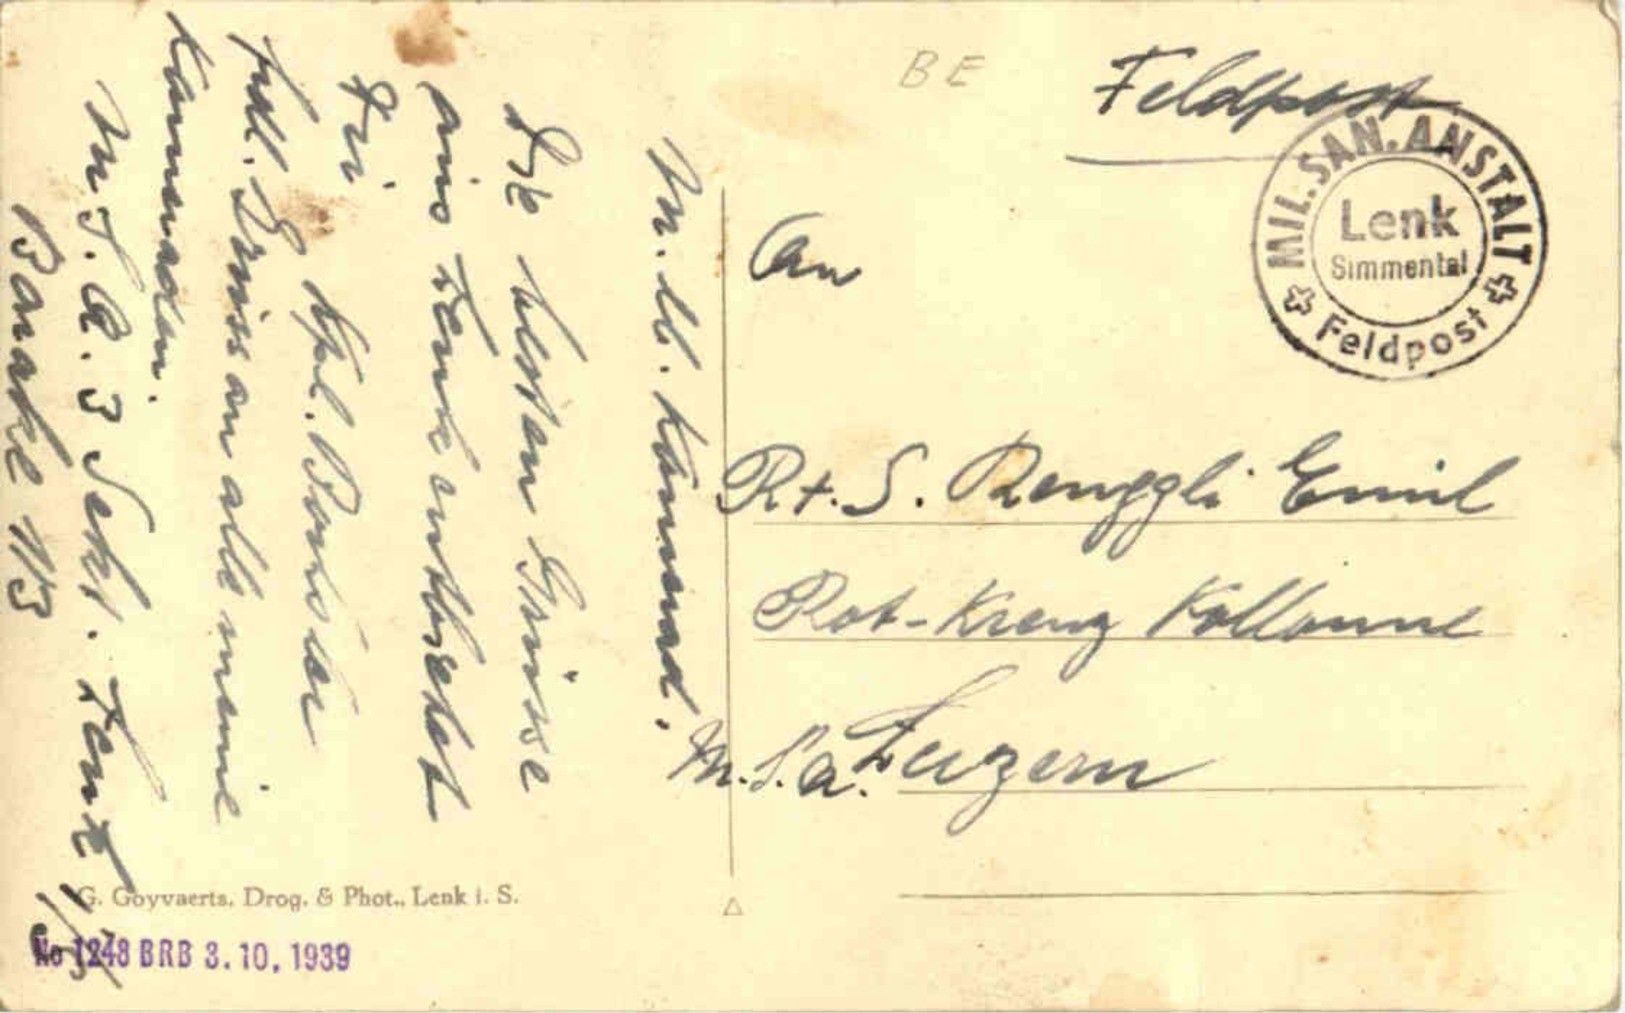 BE
Feldpost
MIL. SAN. ANSTALT
Lenk
Simmental
Feldpost
An
Rt. S. Renggli Emil
Rot-Kreuz Kollonne
M. S. A. Luzern
M. lb. Kamerad.
Die besten Grüsse
aus Lenk entbietet
Dir
Kpl.
Grüss an alle meine
Kammeraden.
M. S. A. 3 Sekt. Lenk
Baracke
G. Goyvaerts, Drog. & Phot., Lenk i. S.
No 1248 BRB 3. 10. 1939